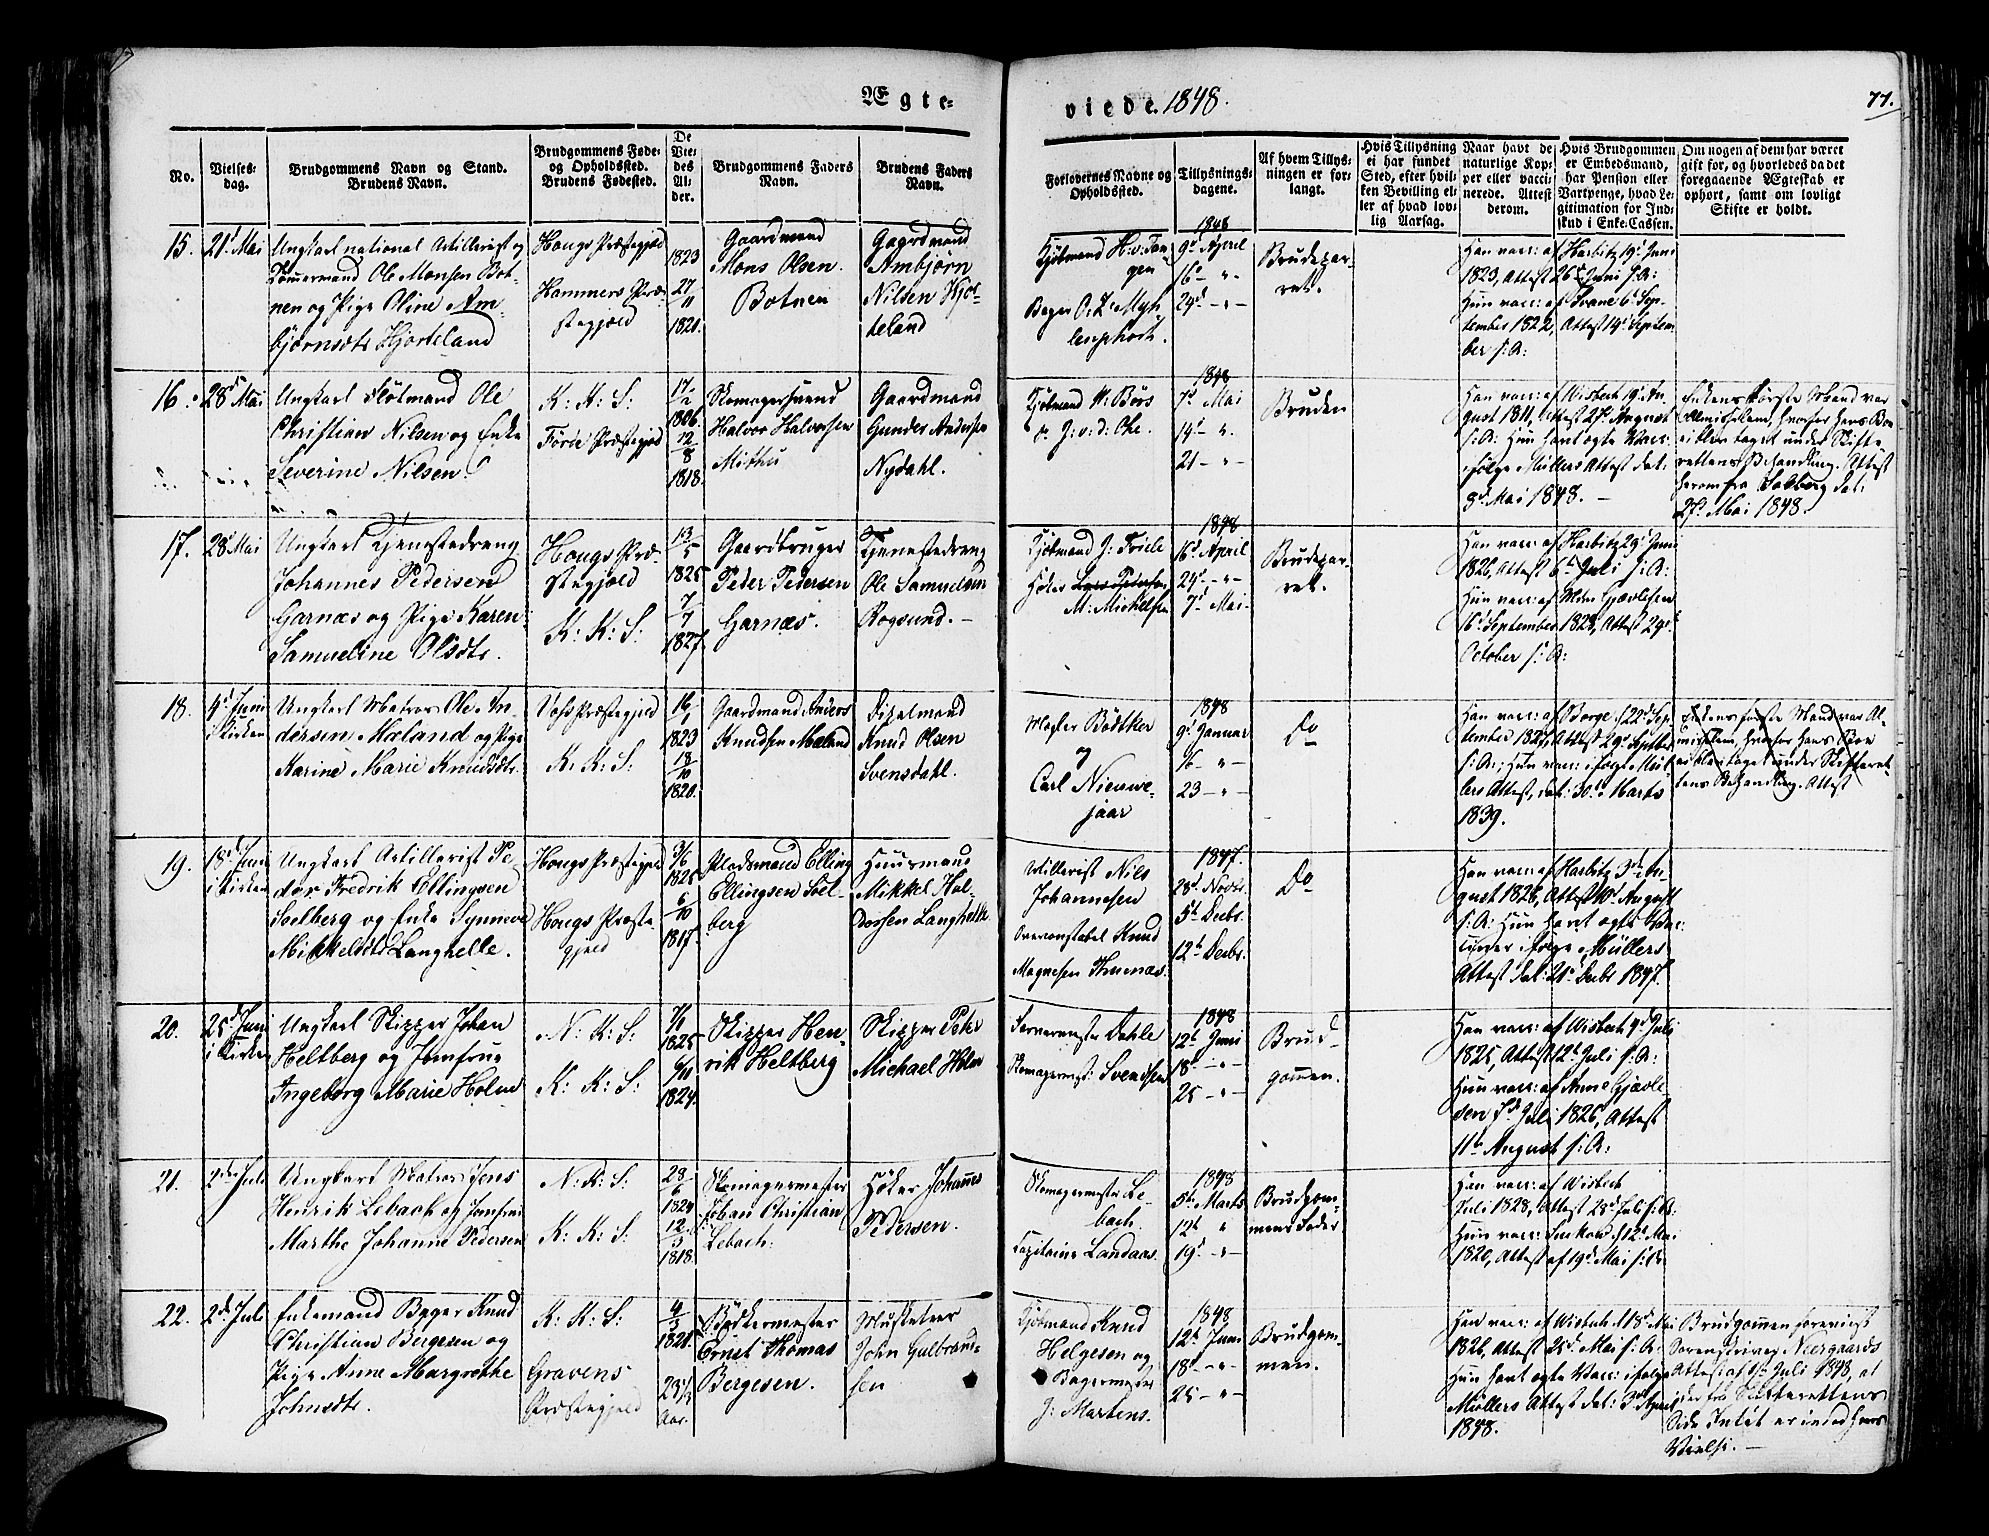 Ægte-
viede 1848.
77.
No.
Vielses-
dag.
Brudgommens Navn og Stand.
Brudens Navn.
Brudgommens Føde-
og Opholdssted.
Brudens Fødested.
De
Vie-
des
Al-
der.
Brudgommens Faders
Navn.
Brudens Faders
Navn.
Forlovernes Navne og
Opholdssted.
Tillysnings-
dagene.
Af hvem Tillys-
ningen er for-
langt.
Hvis Tillysning
ei har fundet
Sted, efter hvil-
ken Bevilling el-
ler af hvad lov-
lig Aarsag.
Naar havt de
naturlige Kop-
per eller vacci-
nerede. Attest
derom.
Hvis Brudgommen
er Embedsmand,
har Pension eller
Vartpenge, hvad Le-
gitimation for Ind-
skud i Enke-Cassen.
Om nogen af dem har været
gift før, og hvorledes da det
foregaaende Ægteskab er
ophørt, samt om lovligt
Skifte er holdt.
15.
21de Mai
Ungkarl national Artillerist og
Tømmermand Ole Monsen Bot-
nen og Pige Oline Am-
bjørnsdtr Hjorteland
Hougs Præstegjeld
Hammers Præ-
stegjeld
1823
27
11
1821.
Gaardmand
Mons Olsen
Botnen
Gaardmand
Ambjørn
Nilsen Hjor-
teland
Kjøbmand H. v. Tan-
gen
Bager O. Z. Myh-
lenphort.
1848
9de April
16 - " -
24de - " -
Brudepar-
ret.
Han vacc: af Harbitz 19de Juni
1823, Attest 26de Juni s: A:
Hun vacc: af Krane 6te Sep-
tember 1822, Attest 14de Septem-
ber s: A:
16.
28de Mai
Ungkarl Flötmand Ole
Christian Nilsen og Enke
Severine Nilsen
K: K: S:
Førde Præstegjeld
17
2
1806.
12
8
1818.
Skomagersvend
Halvor Halvorsen
Gaardmand
Gunder Andersen
Nydahl.
Kjøbmand N. Börs
1848
7de Mai
14de - " -
21 - " -
Bruden
Han vacc: af Wisbech 19de Au-
gust 1811, Attest 27de August
s: A: Hun havt ogte Vacc:
ifølge Müllers Attest dat:
8de Mai 1848. -
Enkens første Mand var
Almislem, hvorfor hans Boe
ei blev taget under Skifte-
rettens Behandling. Attest
herom fra Salberg dat:
27de Mai 1848.
17.
28de Mai
Ungkarl Tjenestedreng
Johannes Pedersen
Garnæs og Pige Karen
Samueline Olsdtr.
Hougs Præ-
stegjeld
K: K: S:
13
5
1825
7
7
1827.
Gaardbruger
Peder Pedersen
Garnæs.
Tjenestedreng
Ole Samuelsen
Rogsund. -
Kjøbmand J. Friele
Höker
M: Michelsen
1848
16de April
24de - " -
7de Mai
Brudepar-
ret.
Han vacc: af Harbitz 29de Juni
1826, Attest 6te Juli s: A:
Hun vacc: af Mdm Gjævlesen
16de September 1828, Attest 29de
October s: A:
18.
4de Juni
i Kirken
Ungkarl Matros Ole An-
dersen Mæland og Pige
Karine Marie Knudsdtr.
Vos Præstegjeld
K: K: S:
16
1
1823
18
10
1820.
Gaardmand Anders
Knudsen Mæland
Digelmand
Knud Olsen
Svensdahl.
Mægler Bödtker
og
Carl Nieuwe-
jaar
1848
9de Januar
16 - " -
23 - " -
Do
Han vacc: af Borge d: 22de Sep-
tember 1827, Attest 29de Septbr
s: A:; Hun vacc: ifølge Mül-
lers Attest, dat: 30te Marts
1839.
Enkens første Mand var Al-
mislem, hvorfor hans Boe
ei blev taget under Skifteret-
tens Behandling. Attest
19.
18de Juni
i Kirken
Ungkarl Artillerist Pe-
der Fredrik Ellingsen
Soelberg og Enke Synneve
Mikkelsdtr Langhelle.
Hougs Præstegjeld
Hougs Præste-
gjeld
3/6
1825
6
10
1817.
Pladsmand Elling
Ellingsen Soel-
berg
Huusmand
Mikkel Hal-
dorsen Langhelle
Artillerist Nils
Johannesen
Overconstabel Knud
Magnesen Thunæs.
1847.
28de Novbr.
5te Decbr.
12te Decbr.
Do
Han vacc: af Harbitz 3die Au-
gust 1826, Attest 10de August
s: A: Hun havt ogte Vac-
ciner ifølge Müllers
Attest dat: 21de Decbr 1847.
20.
25de Juni
i Kirken
Ungkarl Skipper Johan
Heltberg og Jomfrue
Ingeborg Marie Holm
N: K: S:
K: K: S:
1/1
1825
6/11
1824.
Skipper Hen-
rik Heltberg
Skipper Peter
Michael Holm
Farvermester Dahle
Skomagermest: Svendsen
1848
12te Juni
18 - " -
25 - " -
Brud-
gommen.
Han vacc: af Wisbech 9de Juli
1825, Attest 12te Juli s: A:
Hun vacc: af Anne Gjævle-
sen 7de Juli 1826, Attest
11te August s: A:
21.
2den Juli
Ungkarl Matros Jens
Henrik Lebach og Jomfrue
Marthe Johanne Pedersen
N: K: S:
K: K: S:
28
6
1824
12
3
1818.
Skomagermester
Johan Christian
Lebach.
Höker Johannes
Pedersen.
Skomagermester Le-
bach.
Capitaine Landaas.
1848
5te Marts
12te "
19de - " -
Brudgom-
mens Fader
Han vacc: af Wisbech
Juli 1828, Attest 28de Juli s: A:
Hun vacc: d: 12te Mai
1820, Attest af 19de Mai s: A:
22.
2den Juli
Enkemand Bager Knud
Christian Bergesen og
Pige Anne Margrethe
Johnsdtr.
K: K: S:
Gravens
Præstegjeld
4
3
1821.
23 1/2
Aar.
Bødkermester
Ernst Thomas
Bergesen.
Musketeer
John Gulbrand-
sen
Kjøbmand Knud
Helgesen og
Bagermester
J: Martens.
1848
12te Juni
18de - " -
25 - " -
Brudgom-
men.
Han vacc: af Wisbech d: 18de Mai
1826, Attest 25de Mai s: A:
Hun havt ogte Vacc: ifølge
Müllers Attest dat: 3die April
1848.
Brudgommen foreviist
Sorenskriver Neergaards
Attest af 1ste Juli 1848, at
der fra Skifterettens
Side Intet er imod hans
Vielse. -